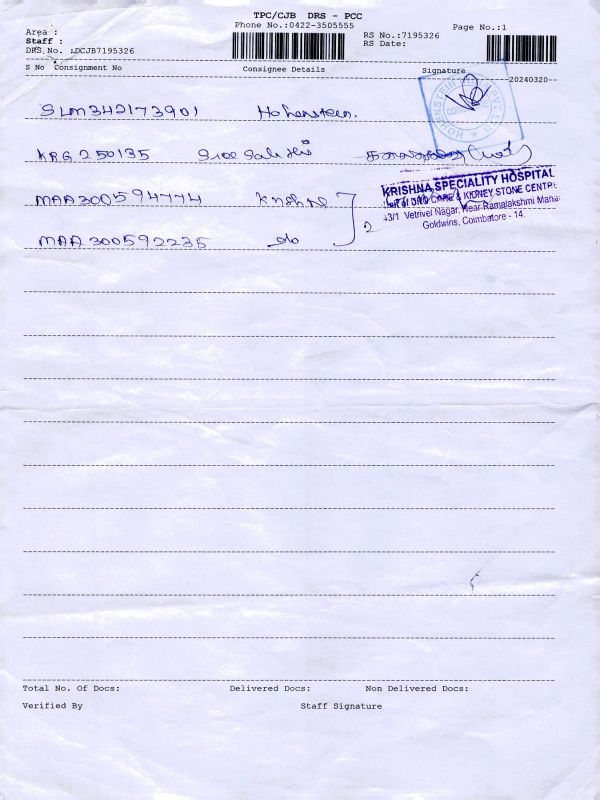 TPC/CJB DRS - PCC
Phone No.:0422-3505555
Page No.:1
Area :
Staff :
DRS.No. :DCJB7195326
RS No.:7195326
RS Date:
S No Consignment No Consignee Details Signature
20240320
SLM342173901 Hohenstein.
KRG250135
MAA300594774 Krishna
MAA300592235 do
2
KRISHNA SPECIALITY HOSPITAL
CARE & KIDNEY STONE CENTRE
43/1 Vetrivel Nagar, Near Ramalakshmi Maha
Goldwins, Coimbatore - 14.
Total No. Of Docs: Delivered Docs: Non Delivered Docs:
Verified By Staff Signature